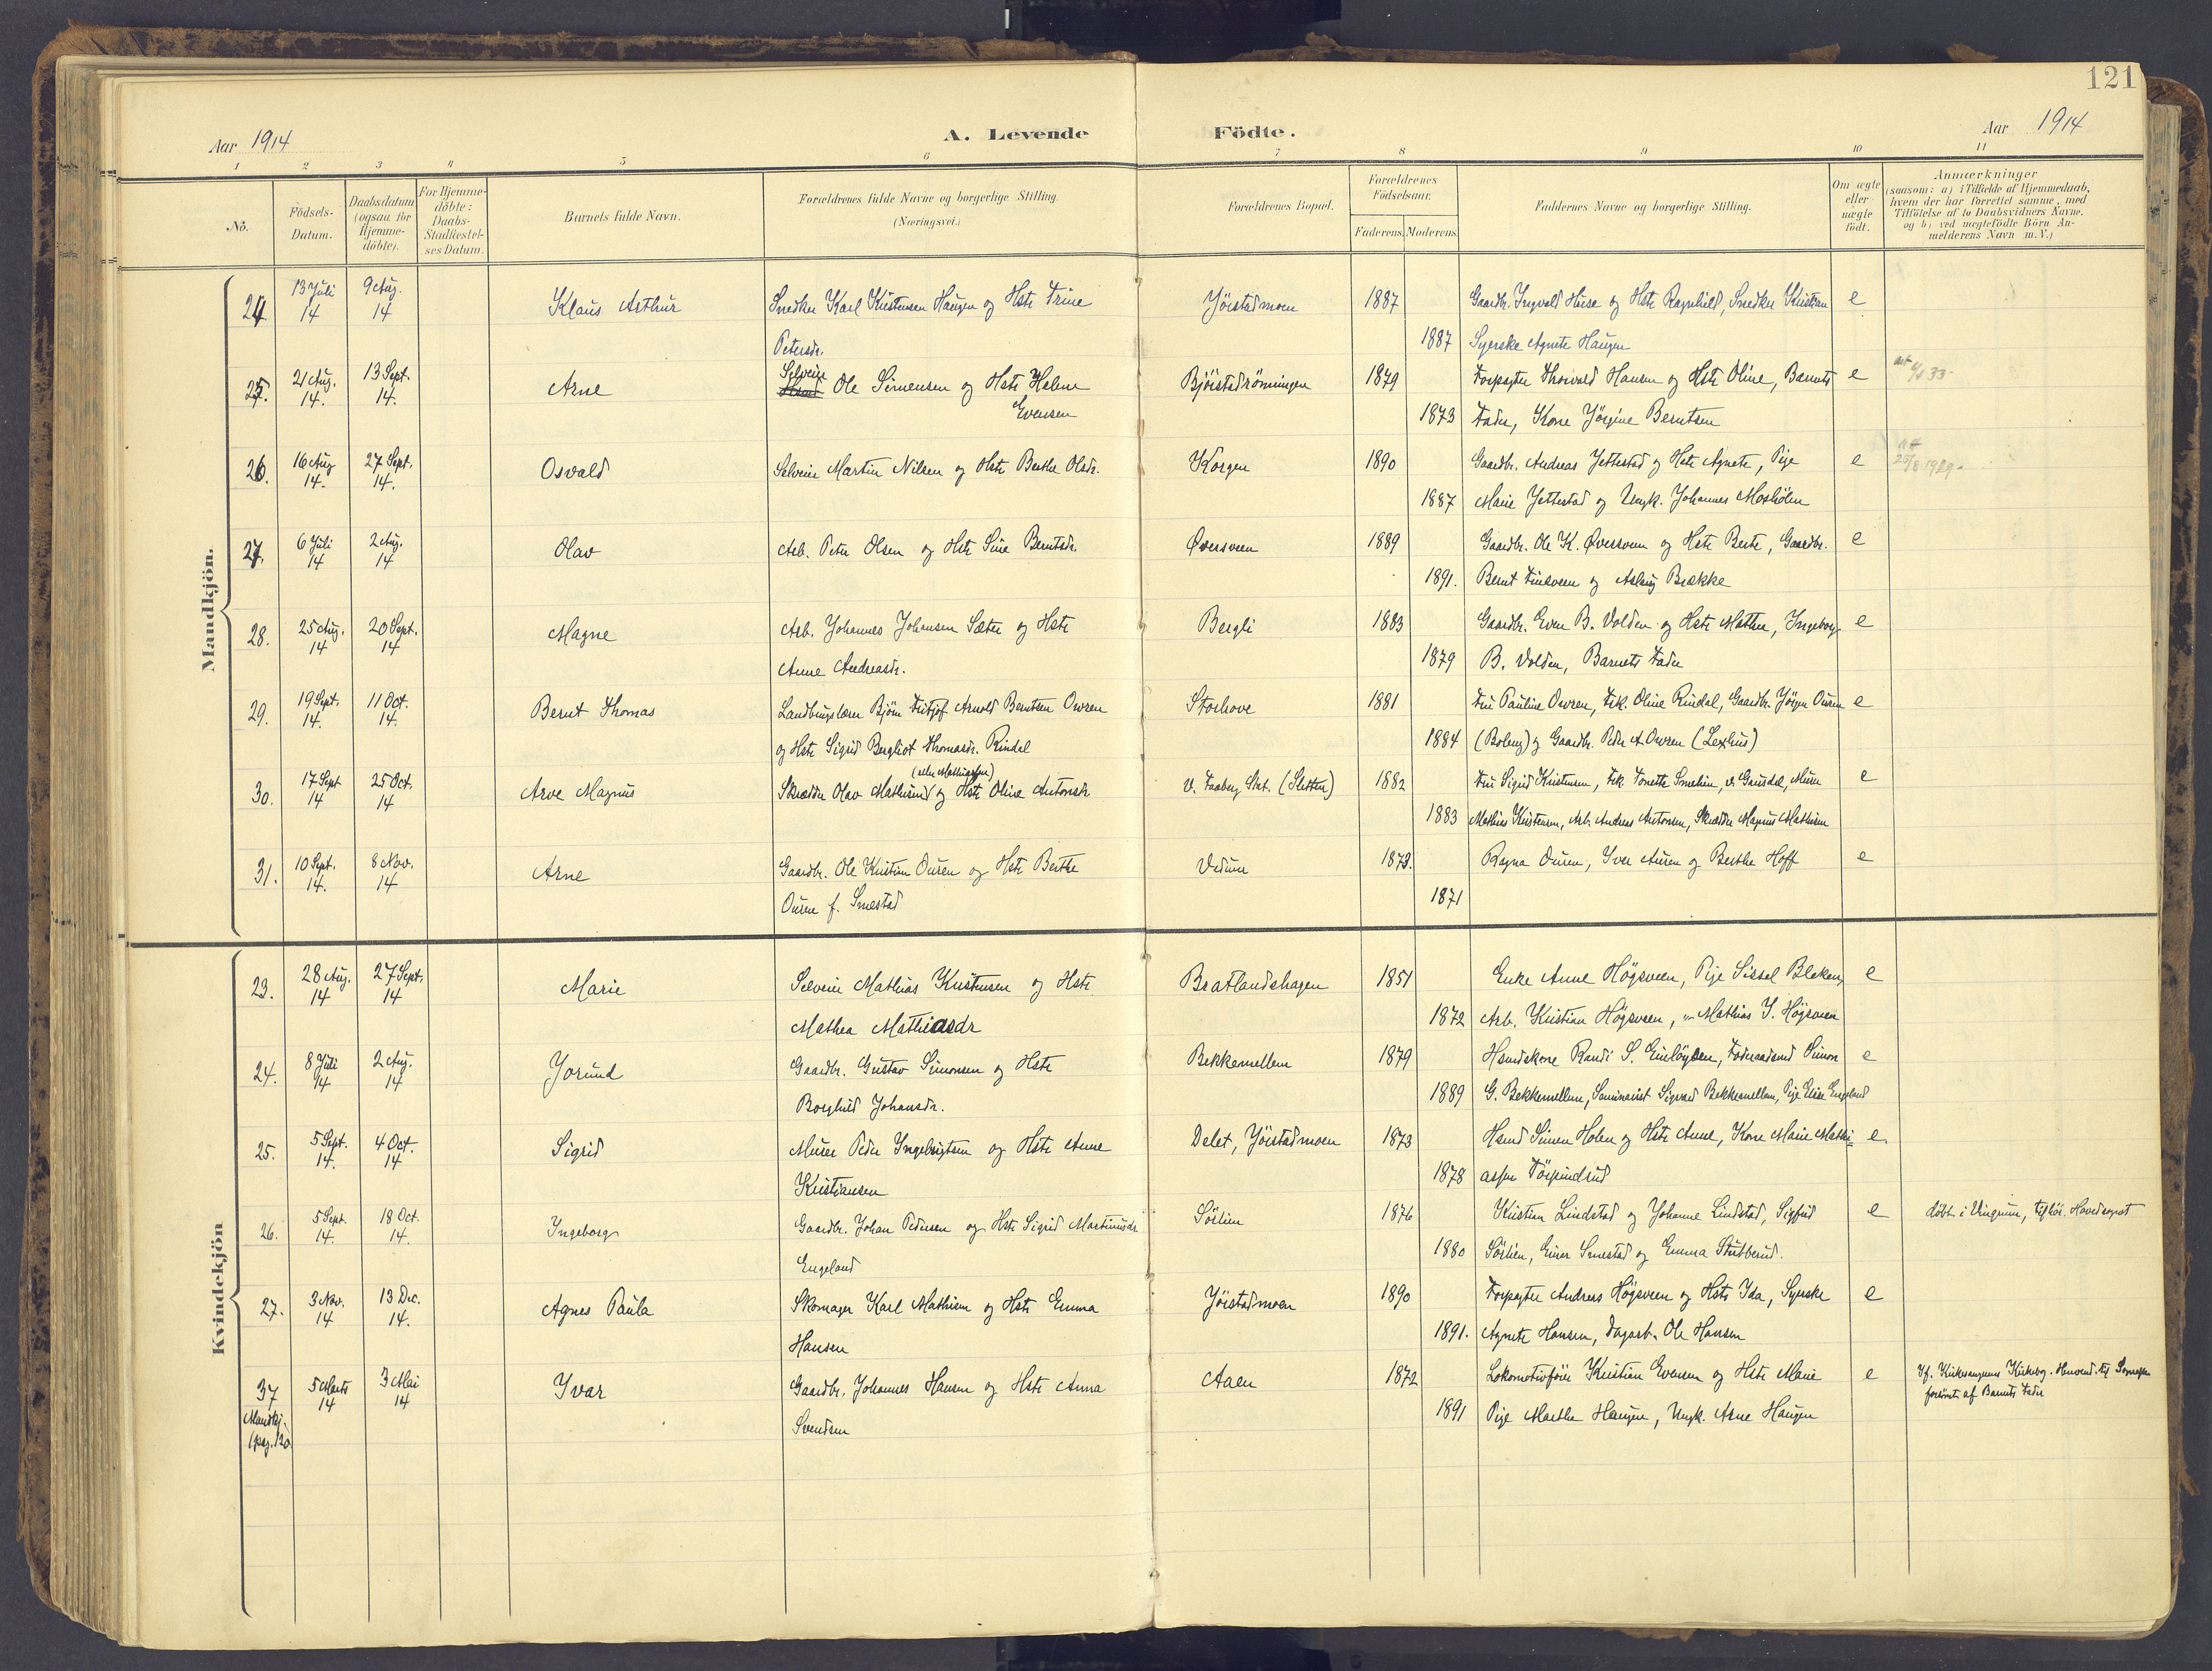 121
Aar 1914
A. Levende Födte.
Aar 1914
1 2 3 4 5 6 7 8 9 10 11
No.
Födsels-Datum.
Daabsdatum (ogsaa for Hjemme-döbte).
For Hjemme-döbte: Daabs-Stadfæstel-ses Datum.
Barnets fulde Navn.
Forældrenes fulde Navne og borgerlige Stilling. (Næringsvei.)
Forældrenes Bopæl.
Forældrenes Födselsaar.
Faderens. Moderens.
Faddernes Navne og borgerlige Stilling.
Om ægte eller uægte födt.
Anmærkninger
(saasom: a) i Tilfælde af Hjemmedaab, hvem der har forrettet samme, med Tilföielse af to Daabsvidners Navne, og b) ved uægtefödte Börn An-melderens Navn m. V.)
Mandkjön.
24. 13 Juli 14 9 Aug. 14 Klaus Arthur Snedker Karl Kristensen Haugen og Hstr Trine Jöistadmoen 1887 Gaardbr. Ingvald Huse og Hstr Ragnhild, Snedker Kristian e
Petersdr. 1887 Syerske Agnete Haugen
25. 21 Aug. 14. 13 Sept. 14. Arne Selveier Ole Simensen og Hstr Helene Bjöistadrönningen 1879 Forpagter Thorvald Hansen og Hstr Oline, Barnets e
Evensen 1873 Fader, Kone Jörgine Berntsen
26. 16 Aug 14. 27 Sept. 14. Osvald Selveier Martin Nilsen og Hstr Berthe Olsdr. Korgen 1890 Gaardbr. Andreas Jettestad og Hstr Agnete, Pige e
1887 Marie Jettestad og Ungk. Johannes Moshölen
27. 6 Juli 14 2 Aug. 14 Olav Arb. Peter Olsen og Hstr Sine Berntsdr. Øversveen 1889 Gaardbr. Ole K. Øversveen og Hstr Berte, Gaardbr. e
1891. Bernt Linsveen og Aslaug Brække
28. 25 Aug. 14 20 Sept. 14 Magne Arb. Johannes Johansen Sæter og Hstr Bergli 1883 Gaardbr. Even B. Volden og Hstr Mathea, Ingeborg e
Anne Andreasdr. 1879 B. Volden, Barnets Fader
29. 19 Sept. 14. 11 Oct. 14. Bernt Thomas Landbrugslærer Björn Fritjof Arnold Berntsen Owren Storhove 1881 Fru Pauline Owren, Frk. Oline Rindal, Gaardbr. Jörgen Ouren e
og Hstr Sigrid Bergliot Thomasdr. Rindal 1884 (Boleng) og Gaardbr. Peder A Owren (Lexhus)
30. 17 Sept 14 25 Oct. 14 Arve Magnus Skrædder Olav Mathisen (eller Mathiassen) og Hstr Oline Antonsdr V. Faaberg Stat. (Sletten) 1882 Fru Sigrid Kristensen, Frk. Tonette Smehien, v. Gausdal, Murer e
1883 Mathias Kristensen, Arb. Andreas Antonsen, Skrædder Magnus Mathisen
31. 10 Sept. 14. 8 Nov. 14 Arne Gaardbr. Ole Kristian Ouren og Hstr Berthe Vedum 1873. Ragna Ouren, Iver Auren og Berthe Hoff e
Ouren f. Smestad 1871
Kvindekjön
23. 28 Aug. 14 27 Sept. 14 Marie Selveier Mathias Kristensen og Hstr. Bratlandshagen 1851 Enke Anne Högsveen, Pige Sissel Bleken, e
Mathea Mathiasdr 1872 Arb. Kristian Högsveen, " Mathias J. Högsveen
24. 8 Juli 14 2 Aug. 14 Jorund Gaardbr. Gustav Simonsen og Hstr Bekkemellem 1879 Hsmdskone Randi S. Smelöyben, Fodermand Simon e
Borghild Johansdr. 1889 G. Bekkemellem, Seminarist Sigvard Bekkemellem, Pige Elise Engeland
25. 5 Sept. 14. 4 Oct. 14 Sigrid Murer Peder Ingebrigtsen og Hstr Anne Delet, Jöistadmoen 1873 Hsmd Simen Holen og Hstr Anne, Kone Marie Mathi= e
Kristiansen 1878 assen Törpindrud
26. 5 Sept. 14. 18 Oct. 14. Ingeborg Gaardbr. Johan Pedersen og Hstr Sigrid Martinusdr Sörlien 1876 Kristian Lindstad og Johanne Lindstad, Sigfrid e döbt i Vingrum, tilhör. Hovedsognet
Engeland 1880 Sörlien, Einar Smestad og Emma Stubberud.
27. 3 Nov. 14 13 Dec. 14. Agnes Paula Skomager Karl Mathisen og Hstr Emma Jöistadmoen 1890 Forpagter Andreas Högsveen og Hstr Ida, Syerske e
Hansen 1891. Agnete Hansen, Dagarb. Ole Hansen
37 Mandkj. (pag. 120 5 Marts 14 3 Mai 14 Ivar Gaardbr. Johannes Hansen og Hstr Anna Aaen 1872 Lokomotivförer Kristian Evensen og Hstr Marie e If. Kirkesangerens Kirkebog. Henvend. til Sognepr.
Svendsen 1891 Pige Marthe Haugen, Ungk. Arne Haugen forsömt af Barnets Fader